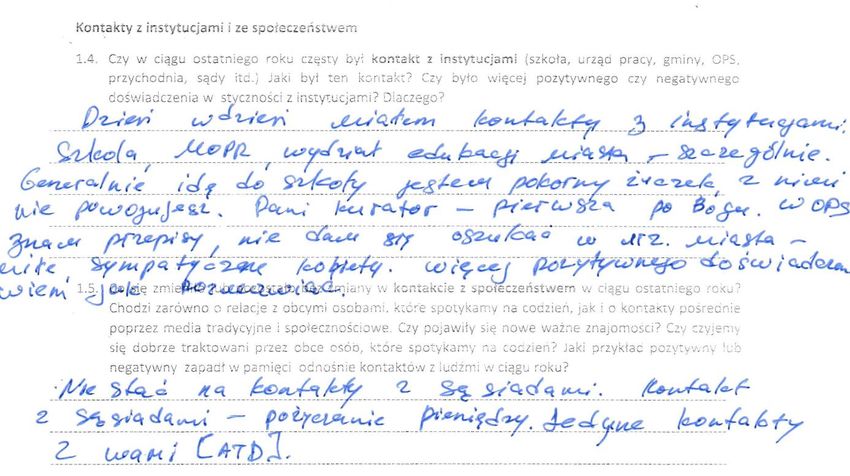 Kontakty z instytucjami i ze społeczeństwem
1.4. Czy w ciągu ostatniego roku częsty był kontakt z instytucjami (szkoła, urząd pracy, gminy, OPS,
przychodnia, sądy itd.) Jaki był ten kontakt? Czy było więcej pozytywnego czy negatywnego
doświadczenia w styczności z instytucjami? Dlaczego?
Dzień w dzień miałem kontakty z instytucjami.
Szkoła, MOPR, wydział edukacji miasta – szczególnie.
Generalnie idę do szkoły jestem pokorny żuczek, z nimi
nie powojujesz. Pani kurator – pierwsza po Bogu. W OPS
znam przepisy, nie dam się oszukać w urz. miasta –
miłe, sympatyczne kobiety. więcej pozytywnego doświadczen
wiem jak
1.5. zmieniło zmiany w kontakcie z społeczeństwem w ciągu ostatniego roku?
Chodzi zarówno o relacje z obcymi osobami, które spotykamy na codzień, jak i o kontakty pośrednie
poprzez media tradycyjne i społecznościowe. Czy pojawiły się nowe ważne znajomości? Czy czujemy
się dobrze traktowani przez obce osób, które spotykamy na codzień? Jaki przykład pozytywny lub
negatywny zapadł w pamięci odnośnie kontaktów z ludźmi w ciągu roku?
Nie stać na kontakty z sąsiadami. Kontakt
z sąsiadami – pożyczanie pieniędzy. Jedyne kontakty
z wami [ATD].